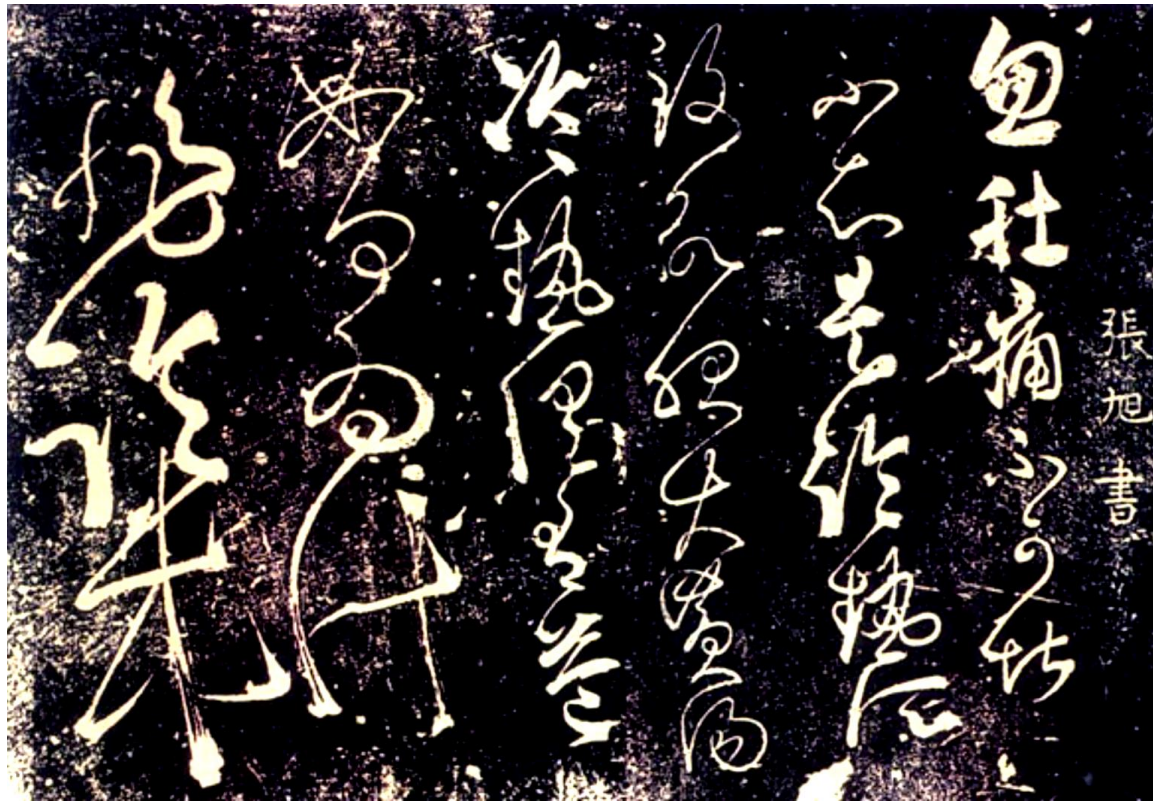 張旭 書
忽肚痛不可堪
不知是冷熱所
致欲服大黃湯
冷熱俱有益
如何為計
非臨床